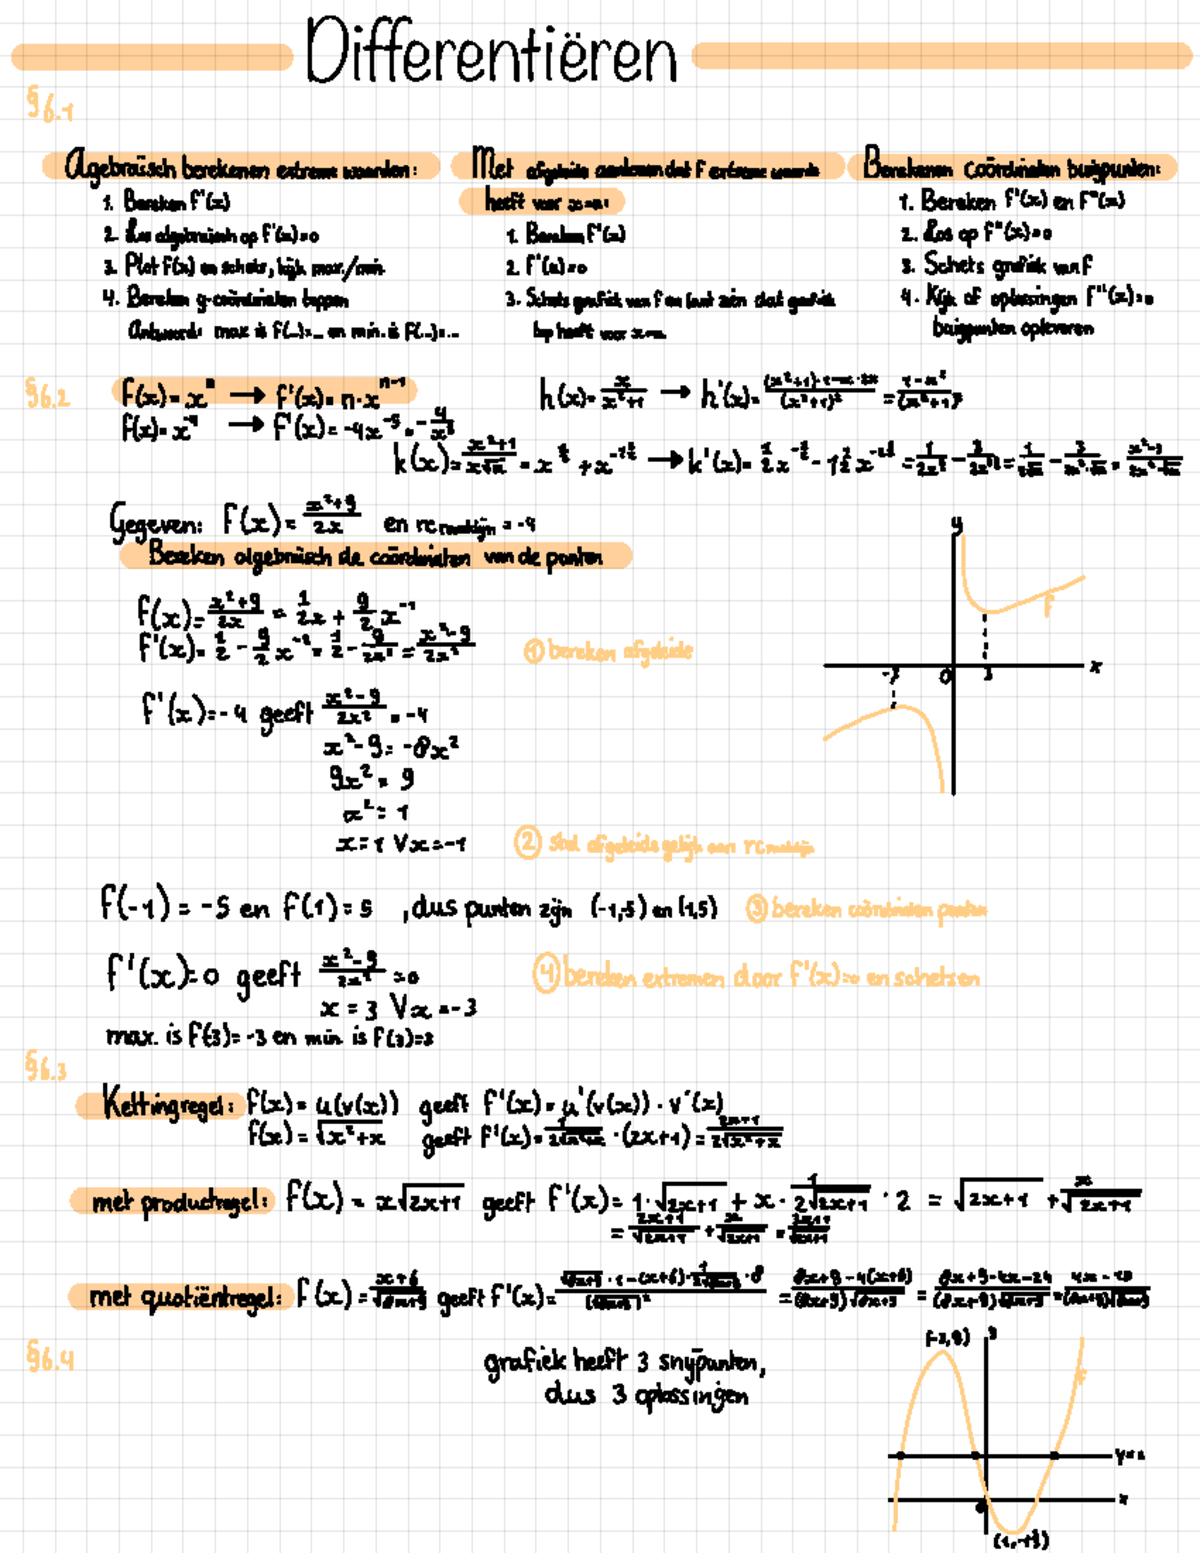 Differentiëren
§6.1
Algebraïsch berekenen extreme waarden:
1. Bereken f'(x)
2. Los algebraisch op f'(x)=0
3. Plot f(x) en schets, kijk max/min
4. Bereken y-coördinaten toppen
Antwoord: max is f(...)=... en min. is f(...)=...
Met afgeleide aantonen dat f extreme waarde
heeft voor x=a:
1. Bereken f'(x)
2. f'(a)=0
3. Schets grafiek van f en laat zien dat grafiek
top heeft voor x=a.
Berekenen coördinaten buigpunten:
1. Bereken f'(x) en f"(x)
2. Los op f"(x)=0
3. Schets grafiek van f
4. Kijk of oplossingen f"(x)=0
buigpunten opleveren
§6.2
f(x)=x^n → f'(x)=n·x^n-1
f(x)=x → f'(x)=-4x^-5=-4/x^5
h(x)=x/x²+1 → h'(x)=(x²+1)·1-x·2x/(x²+1)²=1-x²/(x²+1)²
k(x)=x²+1/x√x=x^½+x^-1½ → k'(x)=½x^-½-1½x^-2½
Gegeven: f(x)=x²+9/2x en rc raaklijn=-4
Bereken algebraïsch de coördinaten van de punten
f(x)=x²+9/2x=1/2x+9/2x^-1
f'(x)=1/2-9/2x^-2=1/2-9/2x²=x²-9/2x²
① bereken afgeleide
f'(x)=-4 geeft x²-9/2x²=-4
x²-9=-8x²
9x²=9
x²=1
x=1 V x=-1
② stel afgeleide gelijk aan rc raaklijn
f(-1)=-5 en f(1)=5, dus punten zijn (-1,-5) en (1,5)
③ bereken coördinaten punten
f'(x)=0 geeft x²-9/2x²=0
④ bereken extremen door f'(x)=0 en schetsen
x=3 V x=-3
max. is f(-3)=-3 en min is f(3)=3
y
f
-3 0 3 x
§6.3
Kettingregel: f(x)=u(v(x)) geeft f'(x)=u'(v(x))·v'(x)
f(x)=√x²+x geeft f'(x)=1/2√x²+x·(2x+1)=2x+1/2√x²+x
met productregel: f(x)=x√2x+1 geeft f'(x)=1·√2x+1+x·1/2√2x+1·2=√2x+1+x/√2x+1
=2x+1/√2x+1+x/√2x+1=3x+1/√2x+1
met quotiëntregel: f(x)=x+6/√8x+9 geeft f'(x)=√8x+9·1-(x+6)·1/2√8x+9·8/(√8x+9)²=8x+9-4(x+6)/(8x+9)√8x+9=8x+9-4x-24/(8x+9)√8x+9=4x-15/(8x+9)√8x+9
§6.4
grafiek heeft 3 snijpunten,
dus 3 oplossingen
y
f
x